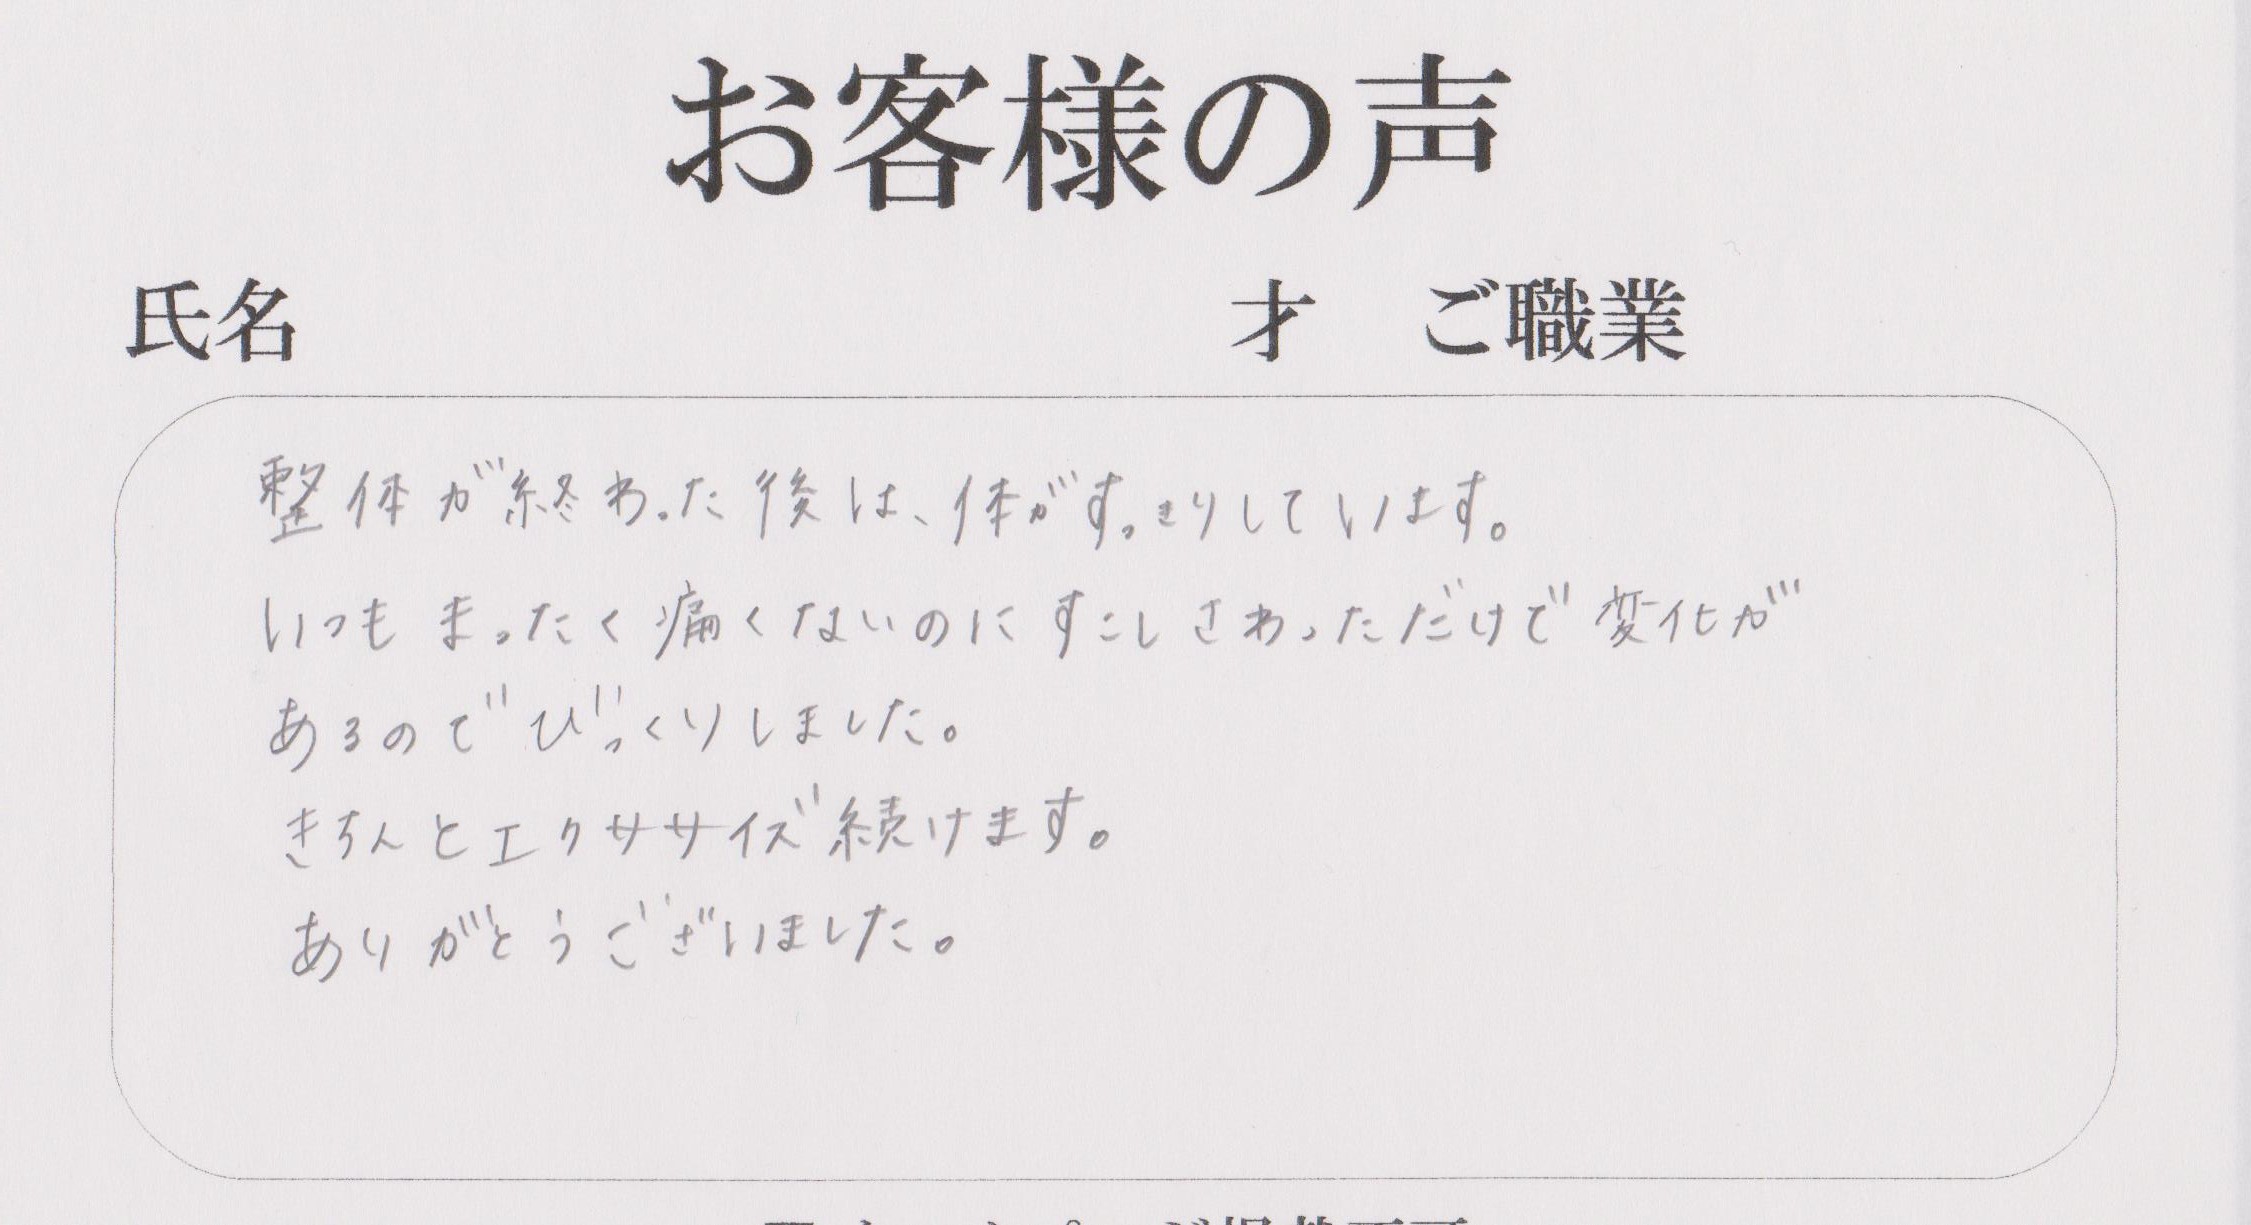 お客様の声
氏名 才 ご職業
整体が終わった後は、体がすっきりしています。
いつもまったく痛くないのにすこしさわっただけで変化が
あるのでびっくりしました。
きちんとエクササイズ続けます。
ありがとうございました。